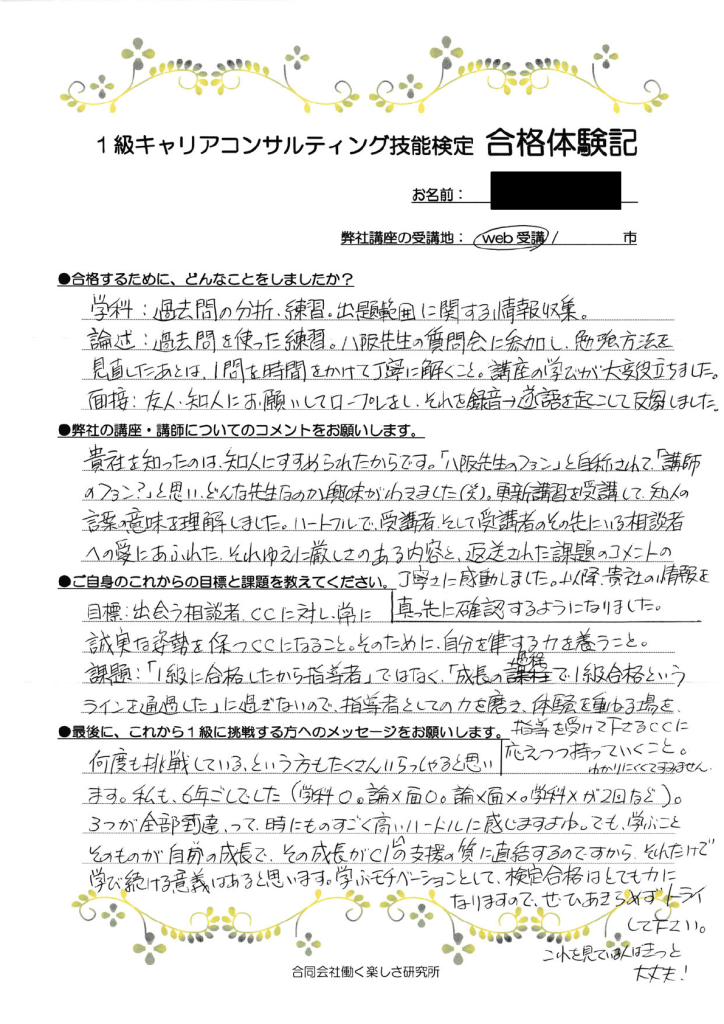 1級キャリアコンサルティング技能検定 合格体験記
お名前：
弊社講座の受講地： web受講 / 市
●合格するために、どんなことをしましたか？
学科：過去問の分析、練習。出題範囲に関する情報収集。
論述：過去問を使った練習。八阪先生の質問会に参加し、勉強方法を
見直したあとは、1問を時間をかけて丁寧に解くこと。講座の学びが大変役立ちました。
面接：友人・知人にお願いしてロープレをし、それを録音→逐語を起こして反芻しました。
●弊社の講座・講師についてのコメントをお願いします。
貴社を知ったのは、知人にすすめられたからです。「八阪先生のファン」と自称されて、「講師
のファン？」と思い、どんな先生なのか興味がわきました(笑)。更新講習を受講して、知人の
言葉の意味を理解しました。ハートフルで、受講者、そして受講者のその先にいる相談者
への愛にあふれた、それゆえに厳しさのある内容と、返送された課題のコメントの
丁寧さに感動しました。以降、貴社の情報を
真っ先に確認するようになりました。
●ご自身のこれからの目標と課題を教えてください。
目標：出会う相談者、CCに対し、常に
誠実な姿勢を保つCCになること。そのために、自分を律する力を養うこと。
課題：「1級に合格したから指導者」ではなく、「成長の過程で1級合格という
ラインを通過した」に過ぎないので、指導者としての力を磨き、体験を重ねる場を、
指導を受けて下さるCCに
応えつつ持っていくこと。
わかりにくくてすみません。
●最後に、これから1級に挑戦する方へのメッセージをお願いします。
何度も挑戦している、という方もたくさんいらっしゃると思い
ます。私も、6年ごしでした（学科○。論×面○。論×面×。学科×が2回など）。
3つが全部到達、って、時にものすごく高いハードルに感じますよね。でも、学ぶこと
そのものが自分の成長で、その成長がClへの支援の質に直結するのですから、それだけで
学び続ける意義はあると思います。学ぶモチベーションとして、検定合格はとても力に
なりますので、ぜひ、あきらめずトライ
して下さい。
これを見ている人はきっと
大丈夫！
合同会社働く楽しさ研究所